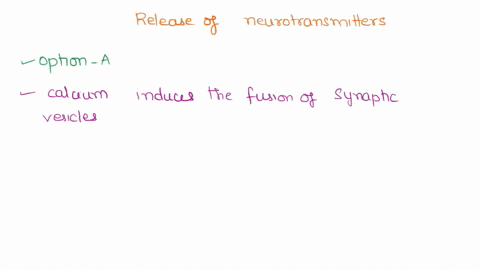 Release of neurotransmitters
- Option-A
- calcium induces the fusion of synaptic
vesicles